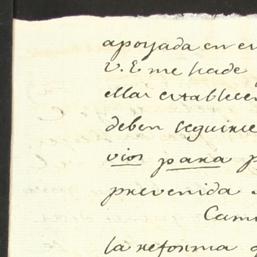 apoyada en
V. E me ha de
ellas establecen
deben seguirse
vios para
prevenida
Cam
la reforma